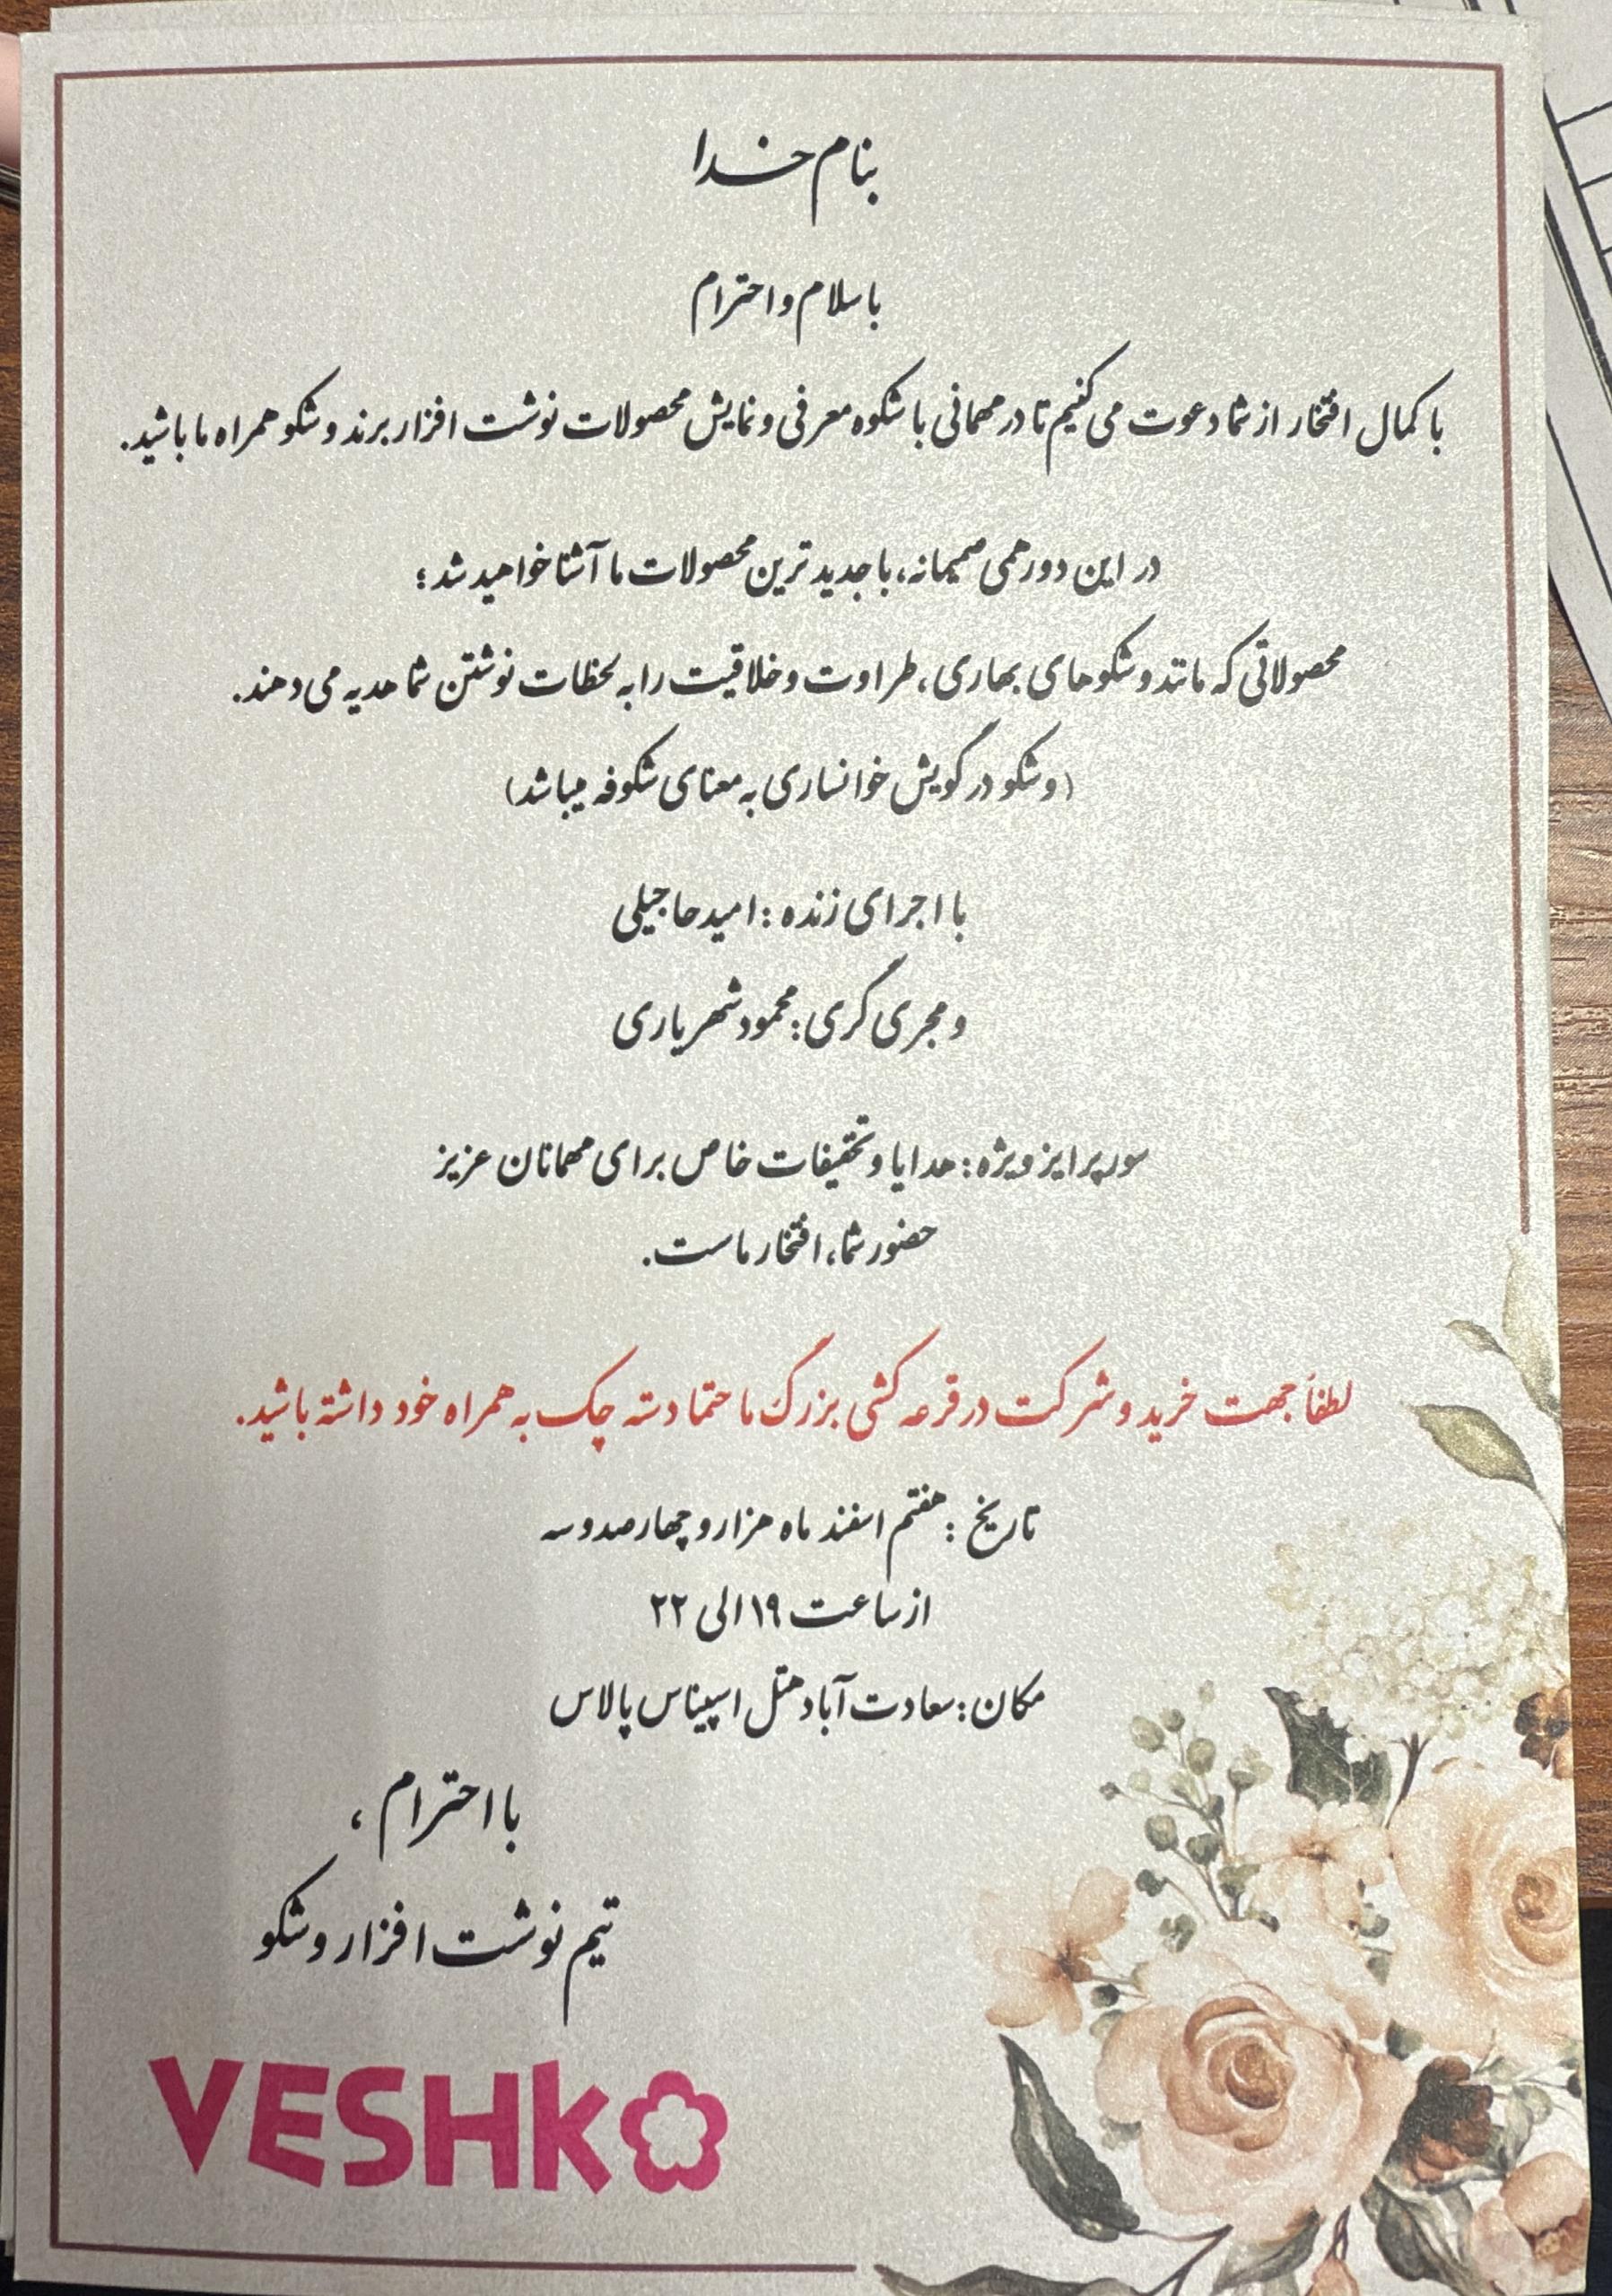 بنام خدا
با سلام و احترام
با کمال افتخار از شما دعوت می کنیم تا در مهمانی با شکوه معرفی و نمایش محصولات نوشت افزار برند وشکو همراه ما باشید.
در این دورهمی صمیمانه، با جدیدترین محصولات ما آشنا خواهید شد؛
محصولاتی که مانند وشکوهای بهاری، طراوت و خلاقیت را به لحظات نوشتن شما هدیه می دهند.
(وشکو در گویش خوانساری به معنای شکوفه میباشد)
با اجرای زنده : امید حاجیلی
و مجری گری: محمود شهریاری
سورپرایز ویژه: هدایا و تخفیفات خاص برای مهمانان عزیز
حضور شما، افتخار ماست.
لطفاً جهت خرید و شرکت در قرعه کشی بزرگ ما حتما دسته چک به همراه خود داشته باشید.
تاریخ : هفتم اسفند ماه هزار و چهارصد و سه
از ساعت ۱۹ الی ۲۲
مکان: سعادت آباد هتل اسپیناس پالاس
با احترام ،
تیم نوشت افزار وشکو
VESHKO